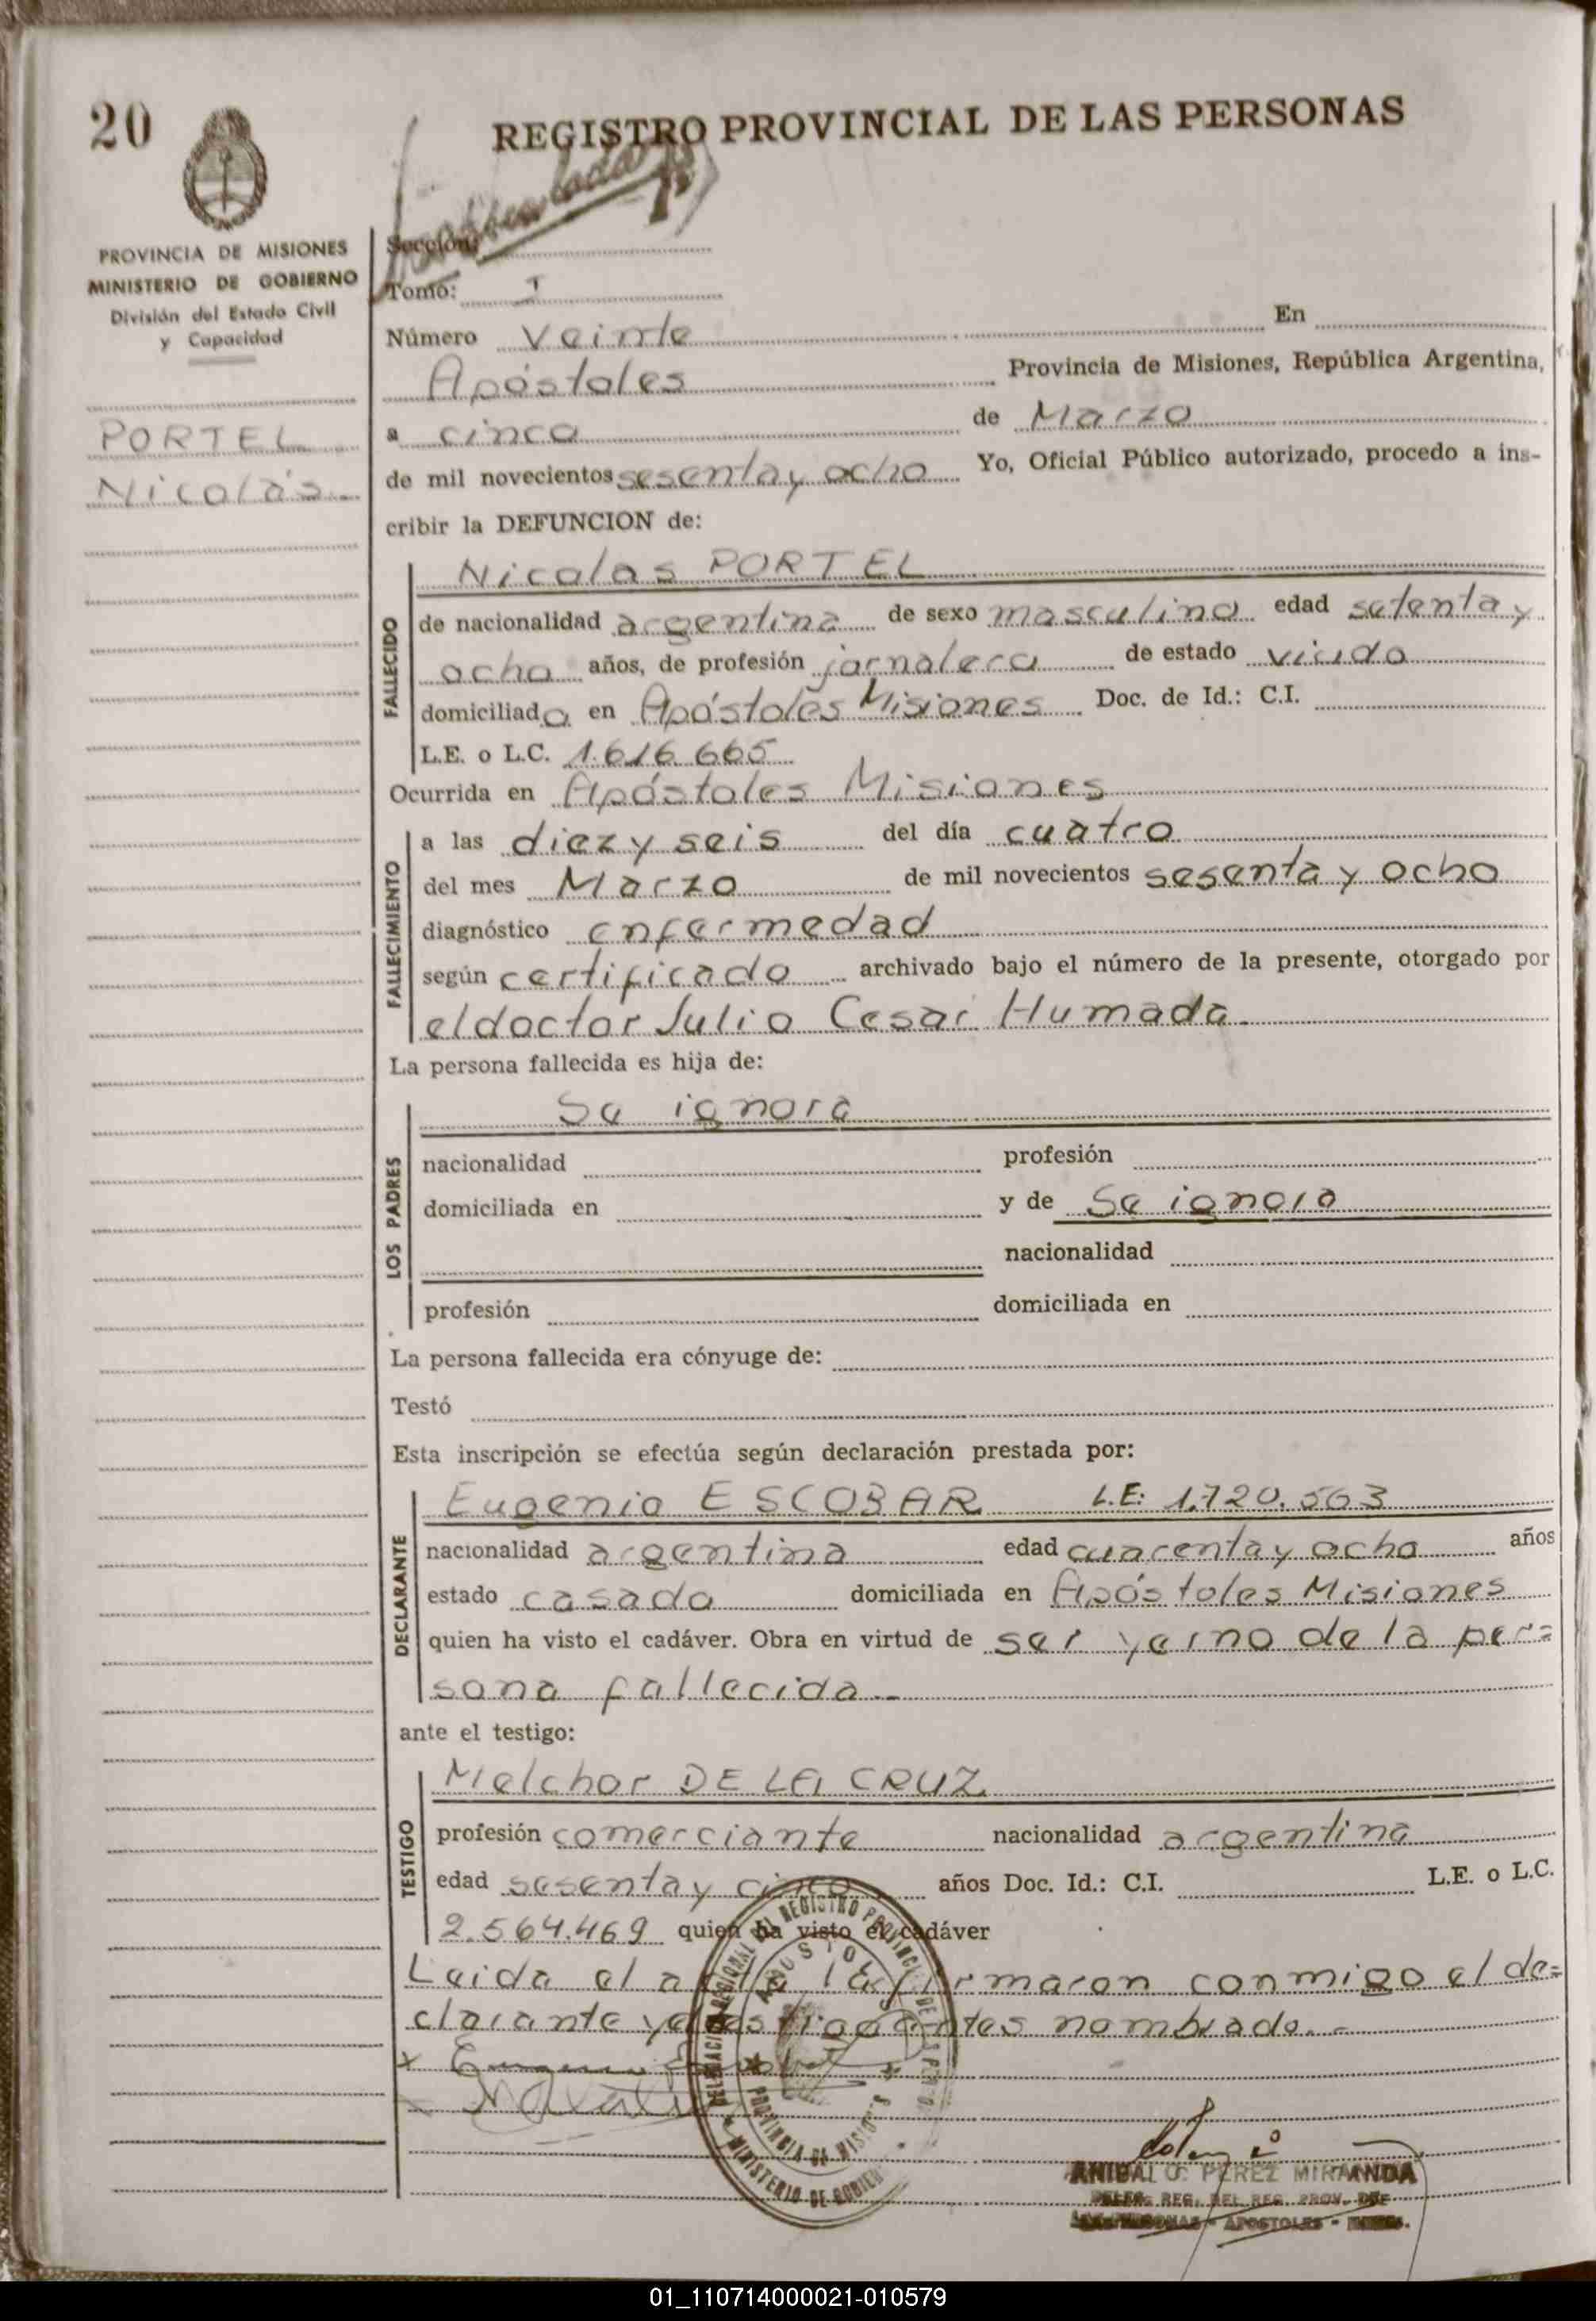 20
REGISTRO PROVINCIAL DE LAS PERSONAS
PROVINCIA DE MISIONES
MINISTERIO DE GOBIERNO
División del Estado Civil
y Capacidad
PORTEL
Nicolás
Sección:
Tomo: I
Número Veinte En
Apóstoles Provincia de Misiones, República Argentina,
a cinco de Marzo
de mil novecientos sesenta y ocho Yo, Oficial Público autorizado, procedo a ins-
cribir la DEFUNCION de:
FALLECIDO
Nicolas PORTEL
de nacionalidad argentina de sexo masculino edad setenta y
ocho años, de profesión jornalero de estado viudo
domiciliado en Apóstoles Misiones Doc. de Id.: C.I.
L.E. o L.C. 1.616.665
Ocurrida en Apóstoles Misiones
FALLECIMIENTO
a las diez y seis del día cuatro
del mes Marzo de mil novecientos sesenta y ocho
diagnóstico enfermedad
según certificado archivado bajo el número de la presente, otorgado por
el doctor Julio Cesar Humada.
La persona fallecida es hija de:
LOS PADRES
Se ignora
nacionalidad profesión
domiciliada en y de Se ignora
nacionalidad
profesión domiciliada en
La persona fallecida era cónyuge de:
Testó
Esta inscripción se efectúa según declaración prestada por:
DECLARANTE
Eugenio ESCOBAR L.E: 1.720.563
nacionalidad argentina edad cuarenta y ocho años
estado casado domiciliada en Apóstoles Misiones
quien ha visto el cadáver. Obra en virtud de ser yerno de la per=
sona fallecida.-
ante el testigo:
TESTIGO
Melchor DE LA CRUZ
profesión comerciante nacionalidad argentina
edad sesenta y cinco años Doc. Id.: C.I. L.E. o L.C.
2.564.469 quien ha visto el cadáver
Leida el acta, la firmaron conmigo el de=
clarante y el testigo antes nombrado.-
PROVINCIA DE MISIONES
MINISTERIO DE GOBIERNO
ANIBAL O. PEREZ MIRANDA
DELEG. REG. DEL REG. PROV. DE
LAS PERSONAS - APOSTOLES -
01_110714000021-010579